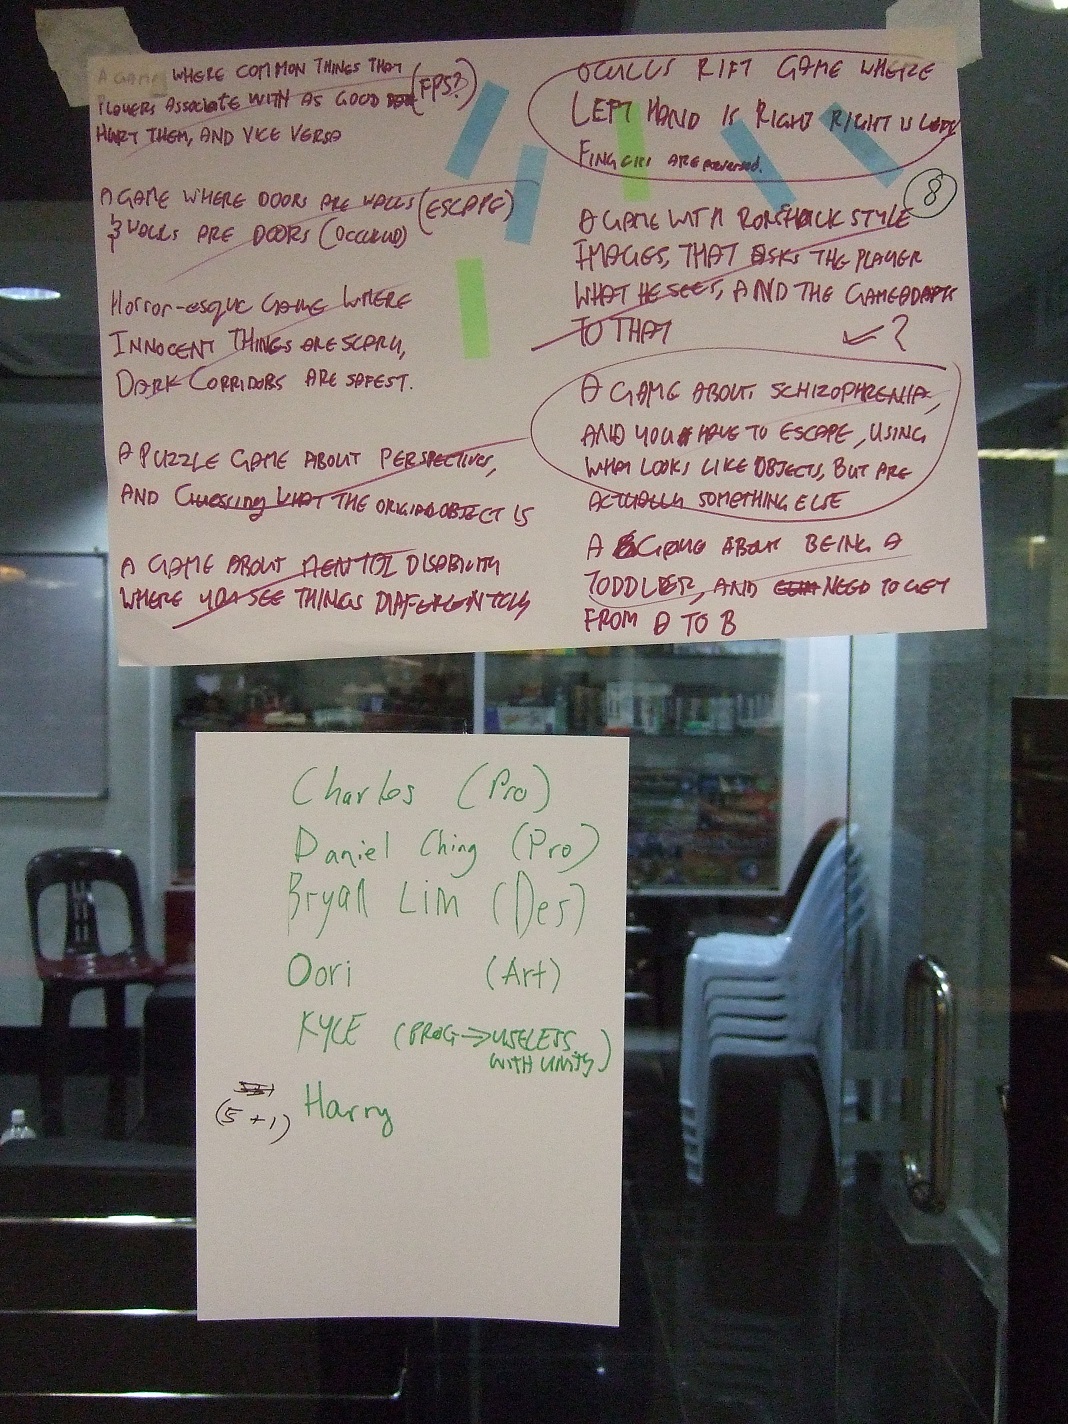 A GAME WHERE COMMON THINGS THAT (FPS?)
PLAYERS ASSOCIATE WITH AS GOOD
HURT THEM, AND VICE VERSA
A GAME WHERE DOORS ARE WALLS (ESCAPE)
& WALLS ARE DOORS
Horror-esque GAME WHERE
INNOCENT THINGS ARE SCARY,
DARK CORRIDORS ARE SAFEST.
A PUZZLE GAME ABOUT PERSPECTIVES,
AND Guessing WHAT THE ORIGINAL OBJECT IS
A GAME ABOUT MENTAL DISABILITY
WHERE YOU SEE THINGS DIFFERENTLY
OCULUS RIFT GAME WHERE
LEFT HAND IS RIGHT RIGHT IS LEFT
FINGERS ARE reversed.
8
A GAME WITH RORSHACK STYLE
IMAGES, THAT ASKS THE PLAYER
WHAT HE SEES, AND THE GAME ADAPTS
TO THAT
?
A GAME ABOUT SCHIZOPHRENIA,
AND YOU HAVE TO ESCAPE, USING
WHAT LOOKS LIKE OBJECTS, BUT ARE
ACTUALLY SOMETHING ELSE
A GAME ABOUT BEING A
TODDLER, AND NEED TO GET
FROM A TO B
Charles (Pro)
Daniel Ching (Pro)
Bryan Lim (Des)
Oori (Art)
KYLE (PROG → USELESS
WITH UNITY)
(5+1) Harry